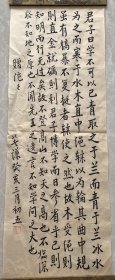 君子曰学不可以已青取之于兰而青于兰冰水
为之而寒于水木直中绳輮以为轮其曲中规
虽有槁暴不复挺者輮使之然也故木受绳则
直金就砺则利君子博学而日参省乎己则
知明而行无过矣故不登高山不知天之高也不临深
谿不知地之厚也不闻先王之遗言不知学问之大也
三月初五